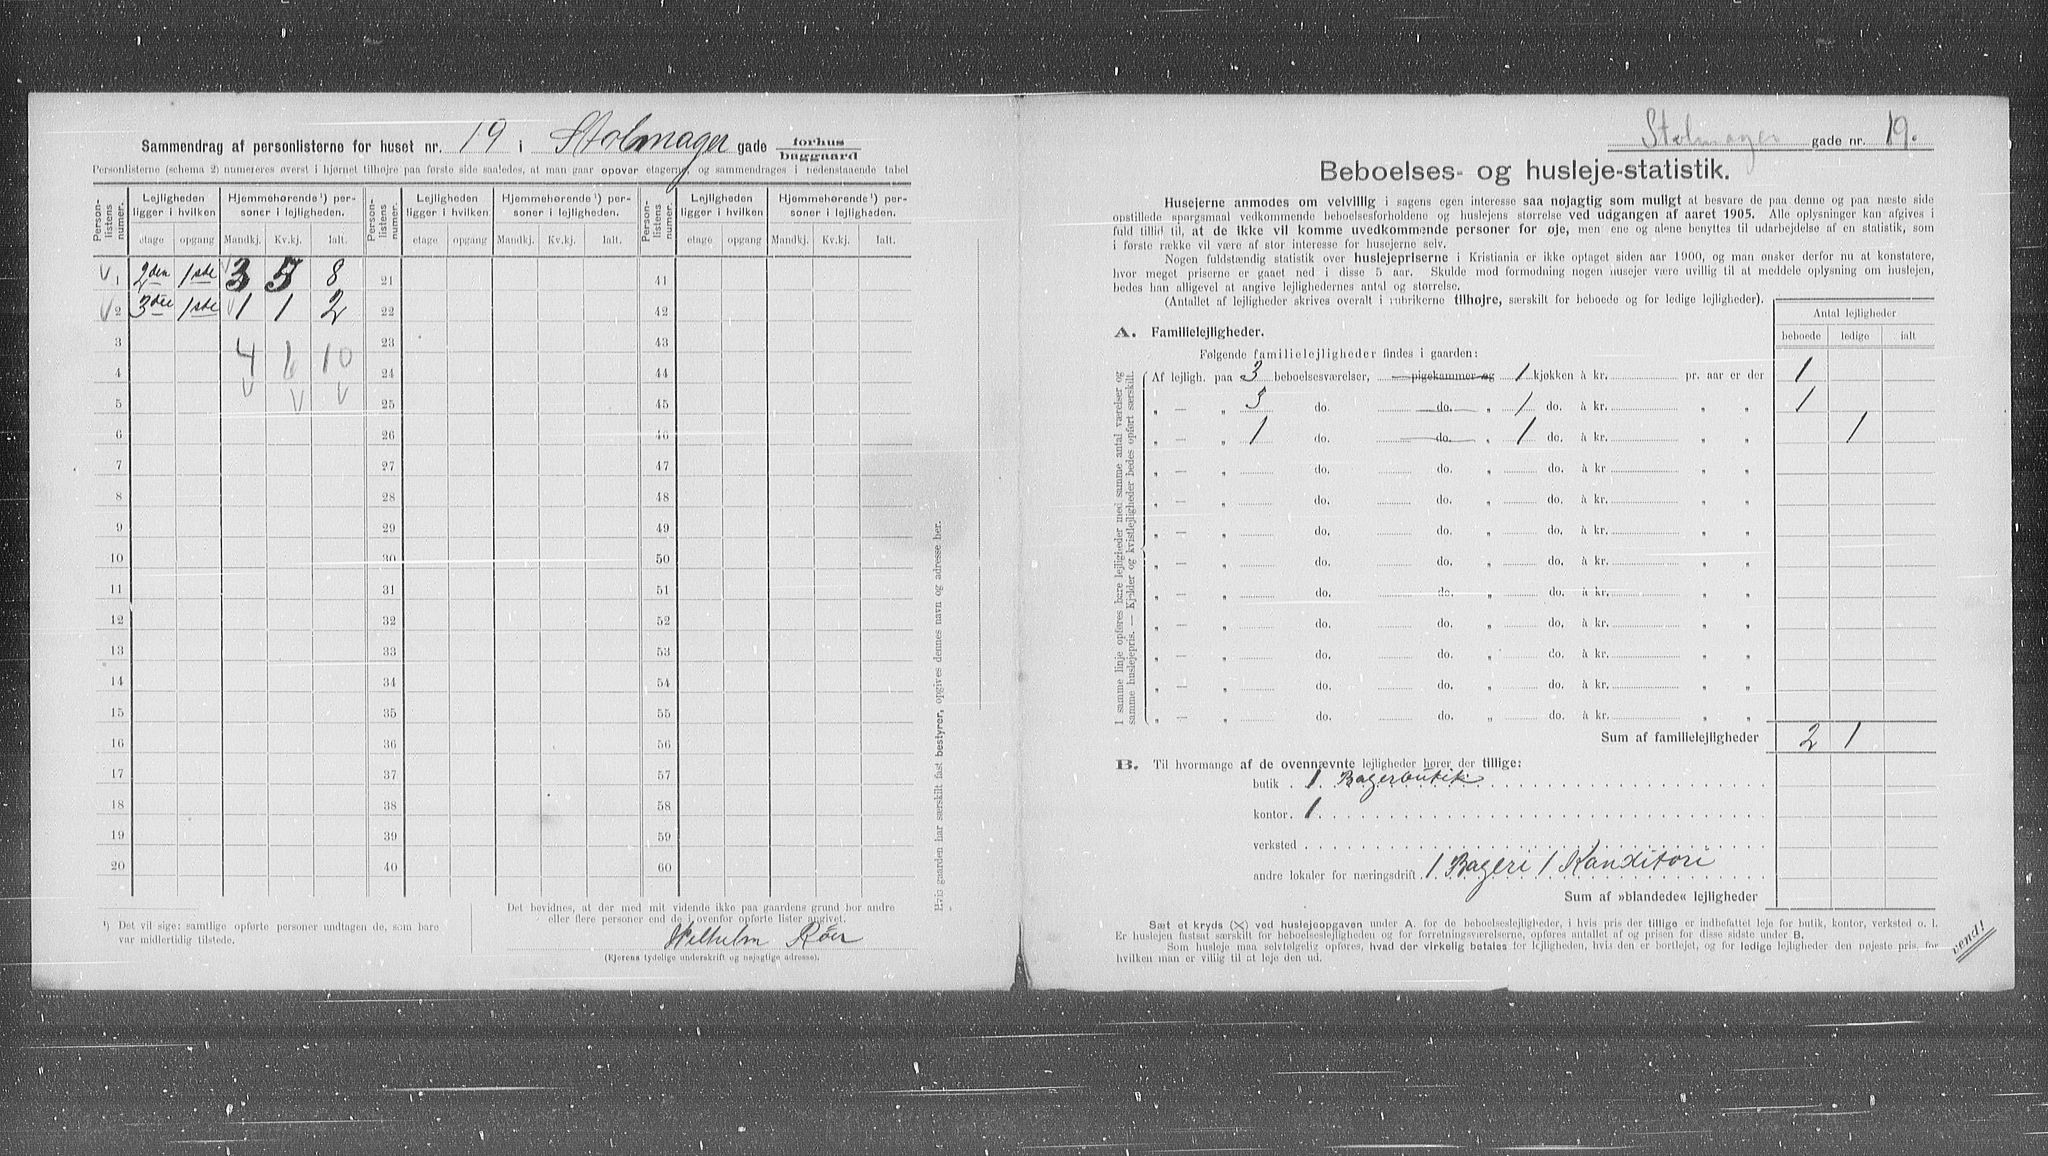 Sammendrag af personlisterne for huset nr. 19 i Stolmager gade forhus baggaard
Personlisterne (schema 2) numereres øverst i hjørnet tilhøjre paa første side saaledes, at man gaar opover etagerne, og sammendrages i nedenstaaende tabel
Person-listens numer. Lejligheden ligger i hvilken Hjemmehørende ¹) personer i lejligheden. Person-listens numer. Lejligheden ligger i hvilken Hjemmehørende ¹) personer i lejligheden. Person-listens numer. Lejligheden ligger i hvilken Hjemmehørende ¹) personer i lejligheden.
etage opgang Mandkj. Kv.kj. Ialt. etage opgang Mandkj. Kv.kj. Ialt. etage opgang Mandkj. Kv.kj. Ialt.
1 2den 1ste 3 5 8 21 41
2 3die 1ste 1 1 2 22 42
3 4 6 10 23 43
4 24 44
5 25 45
6 26 46
7 27 47
8 28 48
9 29 49
10 30 50
11 31 51
12 32 52
13 33 53
14 34 54
15 35 55
16 36 56
17 37 57
18 38 58
19 39 59
20 40 60
Hvis gaarden har særskilt fast bestyrer, opgives dennes navn og adresse her.
¹) Det vil sige: samtlige opførte personer undtagen de, som bare
var midlertidig tilstede.
Det bevidnes, at der med mit vidende ikke paa gaardens grund bor andre
eller flere personer end de i ovenfor opførte lister angivet.
Wilhelm Röer
(Ejerens tydelige underskrift og nøjagtige adresse).
Stolmager gade nr. 19.
Beboelses- og husleje-statistik.
Husejerne anmodes om velvillig i sagens egen interesse saa nøjagtig som muligt at besvare de paa denne og paa næste side
opstillede spørgsmaal vedkommende beboelsesforholdene og huslejens størrelse ved udgangen af aaret 1905. Alle oplysninger kan afgives i
fuld tillid til, at de ikke vil komme uvedkommende personer for øje, men ene og alene benyttes til udarbejdelse af en statistik, som
i første række vil være af stor interesse for husejerne selv.
Nogen fuldstændig statistik over huslejepriserne i Kristiania er ikke optaget siden aar 1900, og man ønsker derfor nu at konstatere,
hvor meget priserne er gaaet ned i disse 5 aar. Skulde mod formodning nogen husejer være uvillig til at meddele oplysning om huslejen,
bedes han alligevel at angive lejlighedernes antal og størrelse.
(Antallet af lejligheder skrives overalt i rubrikerne tilhøjre, særskilt for beboede og for ledige lejligheder).
Antal lejligheder
beboede ledige ialt
A. Familielejligheder.
Følgende familielejligheder findes i gaarden:
I samme linje opføres bare lejligheder med samme antal værelser og
samme huslejepris. — Kjelder og kvistlejligheder bedes opført særskilt.
Af lejligh. paa 3 beboelsesværelser, pigekammer og 1 kjøkken à kr. pr. aar er der 1
„ — „ 3 do. do. „ 1 do. à kr. „ „ 1
„ — „ 1 do. do. „ 1 do. à kr. „ „ 1
„ — „ do. do. „ do. à kr. „ „
„ — „ do. do. „ do. à kr. „ „
„ — „ do. do. „ do. à kr. „ „
„ — „ do. do. „ do. à kr. „ „
„ — „ do. do. „ do. à kr. „ „
„ — „ do. do. „ do. à kr. „ „
„ — „ do. do. „ do. à kr. „ „
„ — „ do. do. „ do. à kr. „ „
„ — „ do. do. „ do. à kr. „ „
Sum af familielejligheder 2 1
B. Til hvormange af de ovennævnte lejligheder hører der tillige:
butik 1 Bagerbutik
kontor 1
verksted
andre lokaler for næringsdrift 1 Bageri 1 Kanditori
Sum af »blandede« lejligheder
Sæt et kryds (X) ved huslejeopgaven under A. for de beboelseslejligheder, i hvis pris der tillige er indbefattet leje for butik, kontor, verksted o. l.
Er huslejen fastsat særskilt for beboelseslejligheden og for forretningsværelserne, opføres antallet af og prisen for disse sidste under B.
Som husleje maa selvfølgelig opføres, hvad der virkelig betales for lejligheden, hvis den er bortlejet, og for ledige lejligheder den nøjeste pris, for
hvilken man er villig til at leje den ud.
vend!